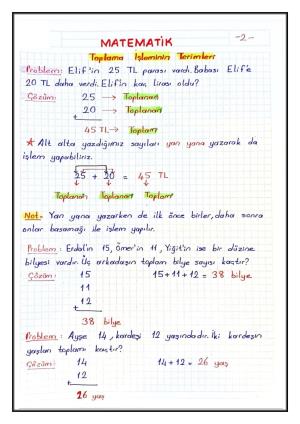 MATEMATİK -2-
Toplama İşleminin Terimleri
Problem: Elif'in 25 TL parası vardı. Babası Elif'e
20 TL daha verdi. Elif'in kaç lirası oldu?
Çözüm: 25 → Toplanan
20 → Toplanan
+
45 TL → Toplam
★ Alt alta yazdığımız sayıları yan yana yazarak da
işlem yapabiliriz.
25 + 20 = 45 TL
Toplanan Toplanan Toplam
Not: Yan yana yazarken de ilk önce birler, daha sonra
onlar basamağı ile işlem yapılır.
Problem: Erdal'ın 15, Ömer'in 11, Yiğit'in ise bir düzine
bilyesi vardır. Üç arkadaşın toplam bilye sayısı kaçtır?
Çözüm: 15 15+11+12 = 38 bilye
11
12
+
38 bilye
Problem: Ayşe 14, kardeşi 12 yaşındadır. İki kardeşin
yaşları toplamı kaçtır?
Çözüm: 14 14+12 = 26 yaş
12
+
26 yaş